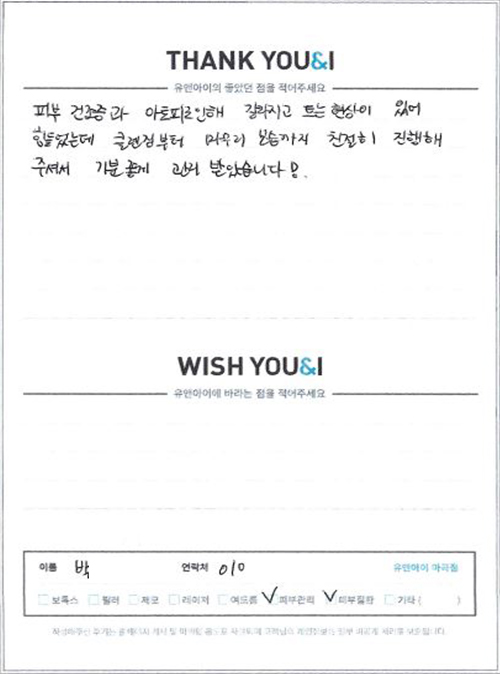 THANK YOU&I
유앤아이의 좋았던 점을 적어주세요
피부 건조증과 아토피로인해 갈라지고 트는현상이 있어
힘들었는데 클렌징부터 마무리 보습까지 친절히 진행해
주셔서 기분좋게 관리 받았습니다
WISH YOU&I
유앤아이에 바라는 점을 적어주세요
이름 박 연락처 010 유앤아이 마곡점
보톡스 필러 제모 레이저 여드름 피부관리 피부질환 기타 ( )